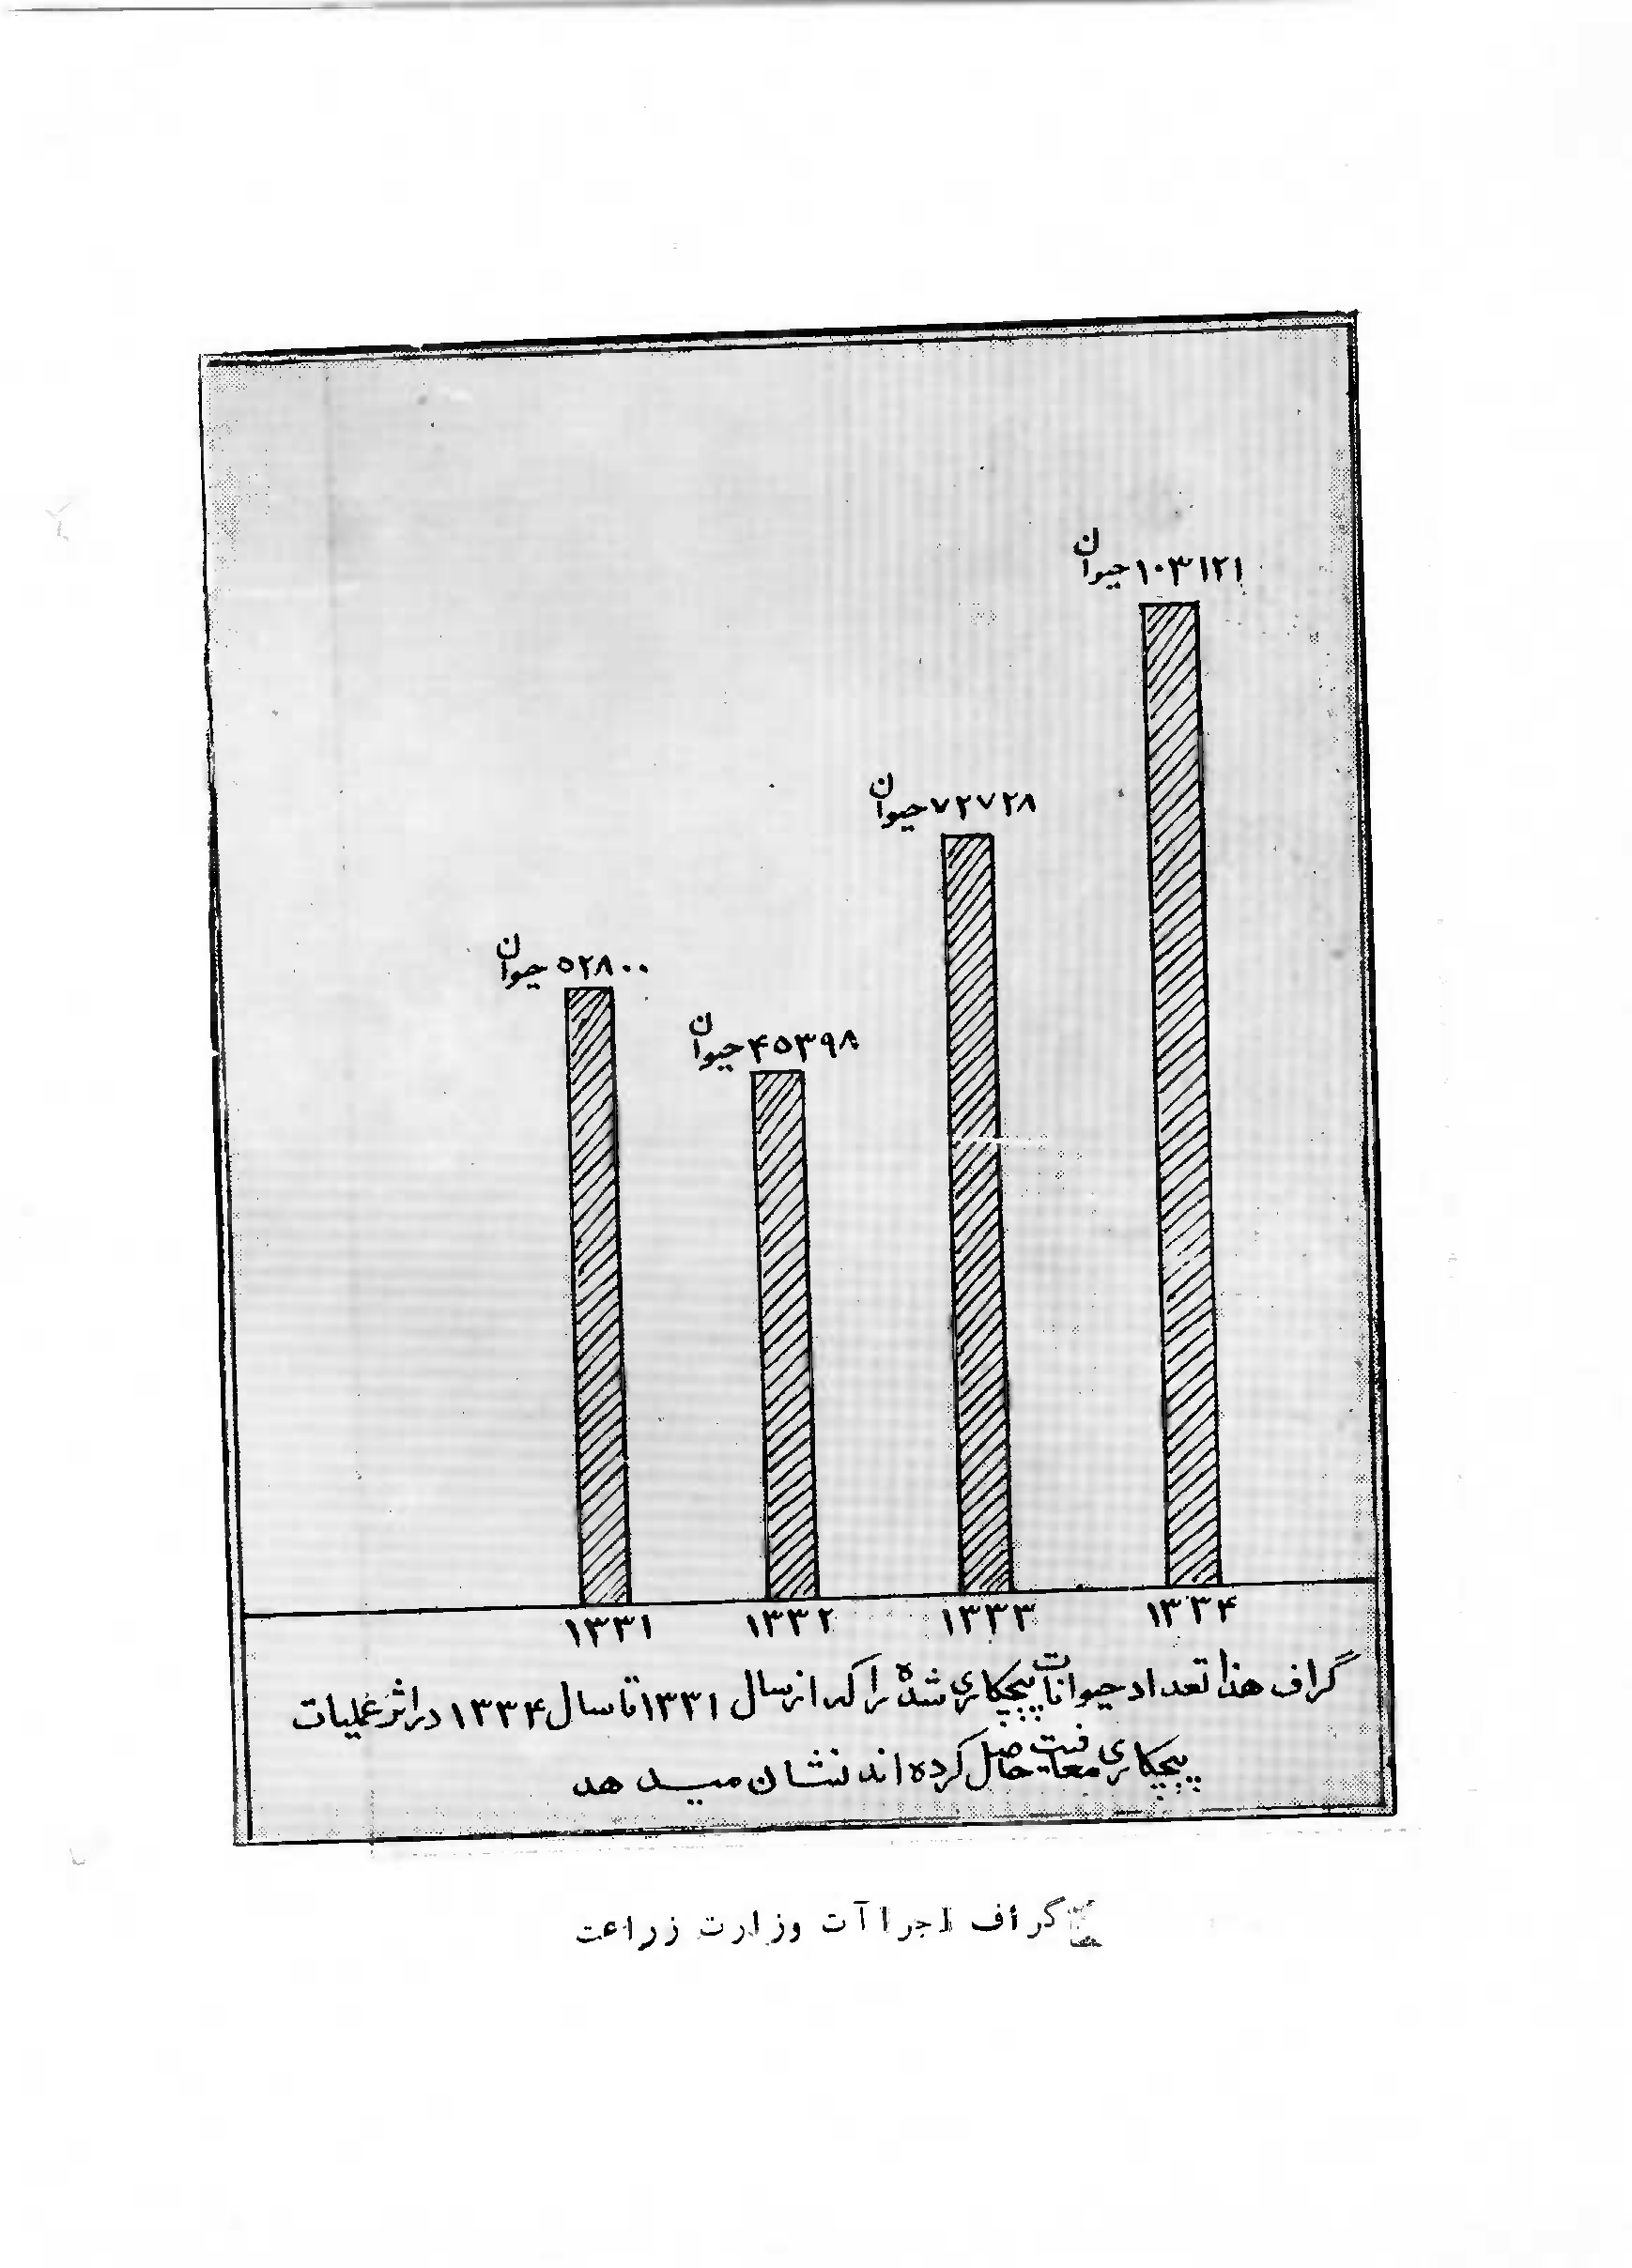 ۱۰۳۱۲۱ حیوان
۷۲۷۲۸ حیوان
۵۲۸۰۰ حیوان
۴۵۳۹۸ حیوان
۱۳۳۱ ۱۳۳۲ ۱۳۳۳ ۱۳۳۴
گراف هذا تعداد حیوانات پیچکاری شده را که از سال ۱۳۳۱ تا سال ۱۳۳۴ در اثر عملیات
پیچکاری معافیت حاصل کرده اند نشان میدهد
گراف اجراآت وزارت زراعت